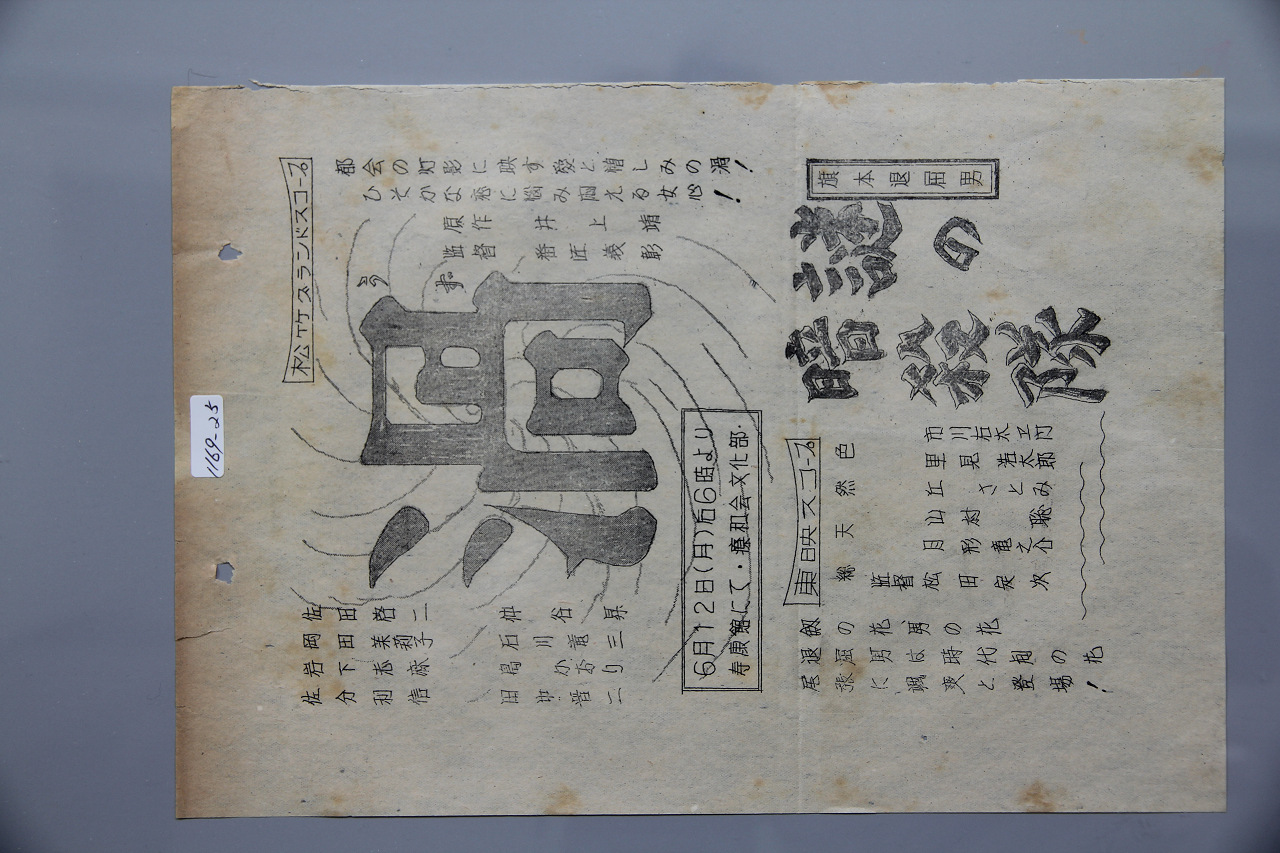 松竹グランドスコープ
都会の灯影に映す愛と憎しみの渦！
ひそかな恋に悩み悶える女心！
原作 井上靖
監督 番匠義彰
うず
渦
佐田啓二 仲谷昇
岡田茉莉子 石川竜二
岩下志麻 島かおり
佐分利信 田中晋二
6月12日(月)后6時より
寿康館にて・療和会文化部.
旗本退屈男
謎の
暗殺隊
東映スコープ
総天然色
市川右太ヱ門
里見浩太郎
丘さとみ
山村聡
月形竜之介
監督 松田定次
剱の花、男の花
退屈男は時代劇の花
尾張に颯爽と登場！
1169-25